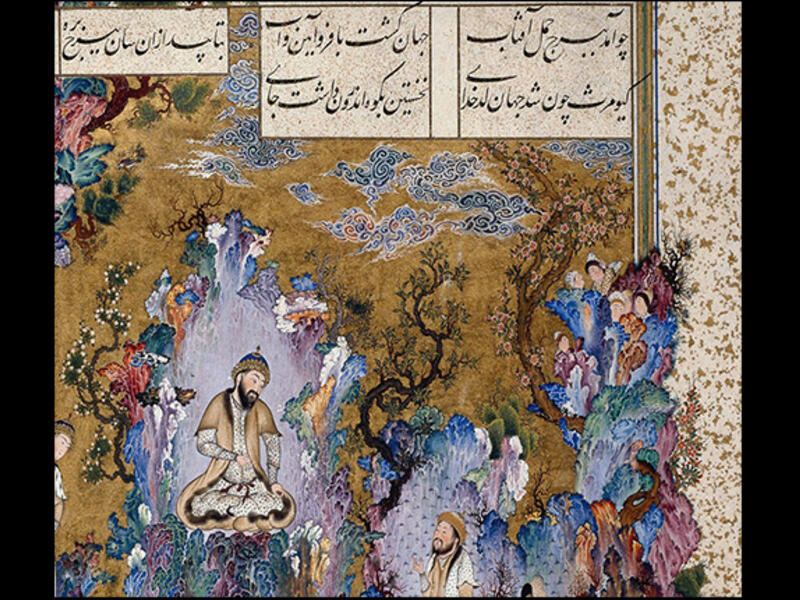 چو آمد ببرج حمل آفتاب جهان گشت با فر و آیین و آب بتابید ازان سان ز برج بره
کیومرث چون شد جهان کدخدای نخستین بکوه اندرون جای